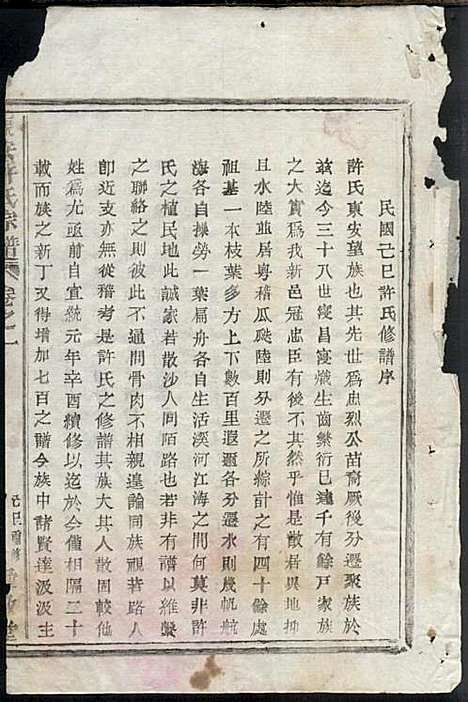 民國己巳許氏修譜序
許氏東安望族也其先世爲忠烈公苗裔厥後分遷聚族於
茲迄今三十八世寖昌寖熾生齒槃衍已達千有餘戸家族
之大實爲我新邑冠忠臣有後不其然乎惟是散居異地抑
且水陸並居粵稽瓜瓞陸則分遷之所綜計之有四十餘處
祖基一本枝葉多方上下數百里遐邇各分遷水則幾帆航
海各自操勞一葉扁舟各自生活溪河江海之間何莫非許
氏之植民地此誠家若散沙人同陌路也若非有譜以維繫
之聯絡之則此不通問骨肉不相親遑論同族視若路人
卽近支亦無從稽考是許氏之修譜其族大其人散固較他
姓爲尤亟前自宣統元年辛酉續修以迄於今僅相隔二十
載而族之新丁又得增加七百之譜今族中諸賢達汲汲主
許氏宗譜 卷之一
己巳 修 堂